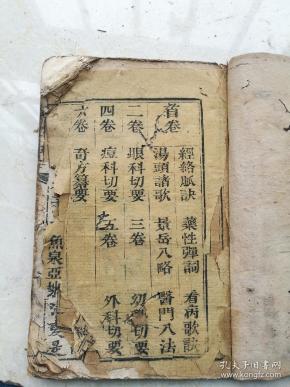 首卷 經絡脈訣 藥性彈詞 看病歌訣
湯頭諸歌 景岳八略 醫門八法
二卷 眼科切要 三卷 幼科切要
四卷 痘科切要 五卷 外科切要
六卷 奇方纂要
孔夫子旧书网